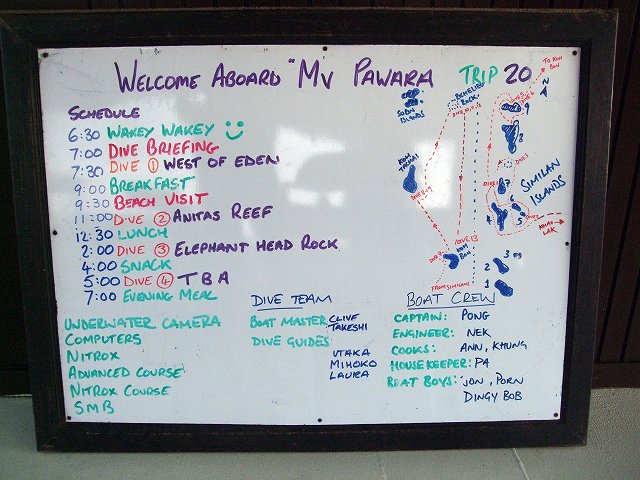 WELCOME ABOARD "MV PAWARA TRIP 20
SCHEDULE
6:30 WAKEY WAKEY
7:00 DIVE BRIEFING
7:30 DIVE 1 WEST OF EDEN
9:00 BREAKFAST
9:30 BEACH VISIT
11:00 DIVE 2 ANITAS REEF
12:30 LUNCH
2:00 DIVE 3 ELEPHANT HEAD ROCK
4:00 SNACK
5:00 DIVE 4 TBA
7:00 EVENING MEAL
UNDERWATER CAMERA
COMPUTERS
NITROX
ADVANCED COURSE
NITROX COURSE
SMB
DIVE TEAM
BOAT MASTER CLIVE
TAKESHI
DIVE GUIDES
UTAKA
MIHOKO
LAURA
BOAT CREW
CAPTAIN: PONG
ENGINEER: NEK
COOKS: ANN, KHUNG
HOUSEKEEPER: PA
BOAT BOYS: JON, PORN
DINGY BOB
TO KOH
BON
N
RICHELIEU
ROCK
SURIN
ISLANDS
KOH
TACHAI
SIMILAN
ISLANDS
KHAO
LAK
KOH
BON
FROM SIMILAN
9
8
7
6
5
4
3
2
1